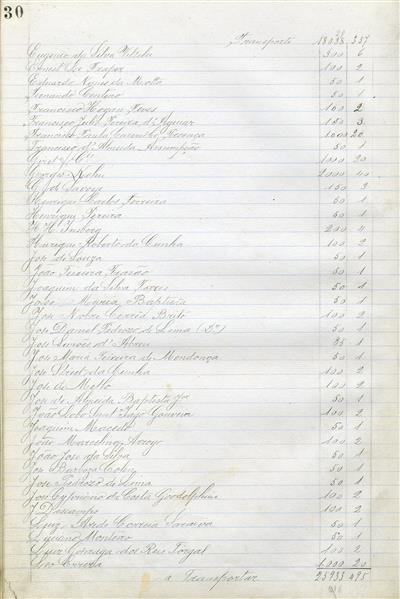 30
Transporte 18038 357
Eugenio da Silva Vilela 300 6
Ernest Leo Trapor 100 2
Eduardo Nunes da Motta 50 1
Fernando Centeno 50 1
Francisco Hogan Teves 100 2
Francisco Julio Pereira d'Aguiar 150 3
Francisco Paula Proença 1000 20
Francisco d'Almeida Assumpção 50 1
& Cª 1000 20
George Kohn 2000 40
C. J. de Savoia 150 3
Henrique Carlos Ferreira 50 1
Henrique Pereira 50 1
H. H. 200 4
Henrique Roberto da Cunha 100 2
José de Souza 50 1
João Teixeira 50 1
Joaquim da Silva Tavares 50 1
José Maria Baptista 50 1
José Nobre Corrêa Brito 100 2
José Daniel Pedrozo de Lima (Dr) 50 1
José Simões d'Abreu 85 1
José Maria Ferreira de Mendonça 50 1
José da Cunha 100 2
José de Motta 100 2
José de Almeida Baptista Jor 50 1
João Lobo Sant'Iago Gouveia 100 2
Joaquim Macedo 50 1
João Marcelino Arroyo 100 2
João José da Silva 50 1
José Barboza Colen 50 1
José Pedrozo de Lima 50 1
José Cypriano da Costa Goodolphim 100 2
J. Descamps 100 2
Luiz Correia Saraiva 50 1
Luciano Monteiro 50 1
Luiz Gonzaga dos Reis Torgal 100 2
1.000 20
a Transportar 25933 495